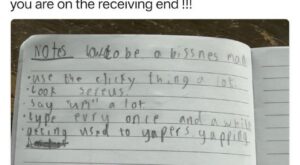 you are on the receiving end !!!
Notes how to be a bissnes man
• use the clicky thing a lot
• look sereus
• say "um" a lot
• type evry once and a while
• getting used to yapers yapping